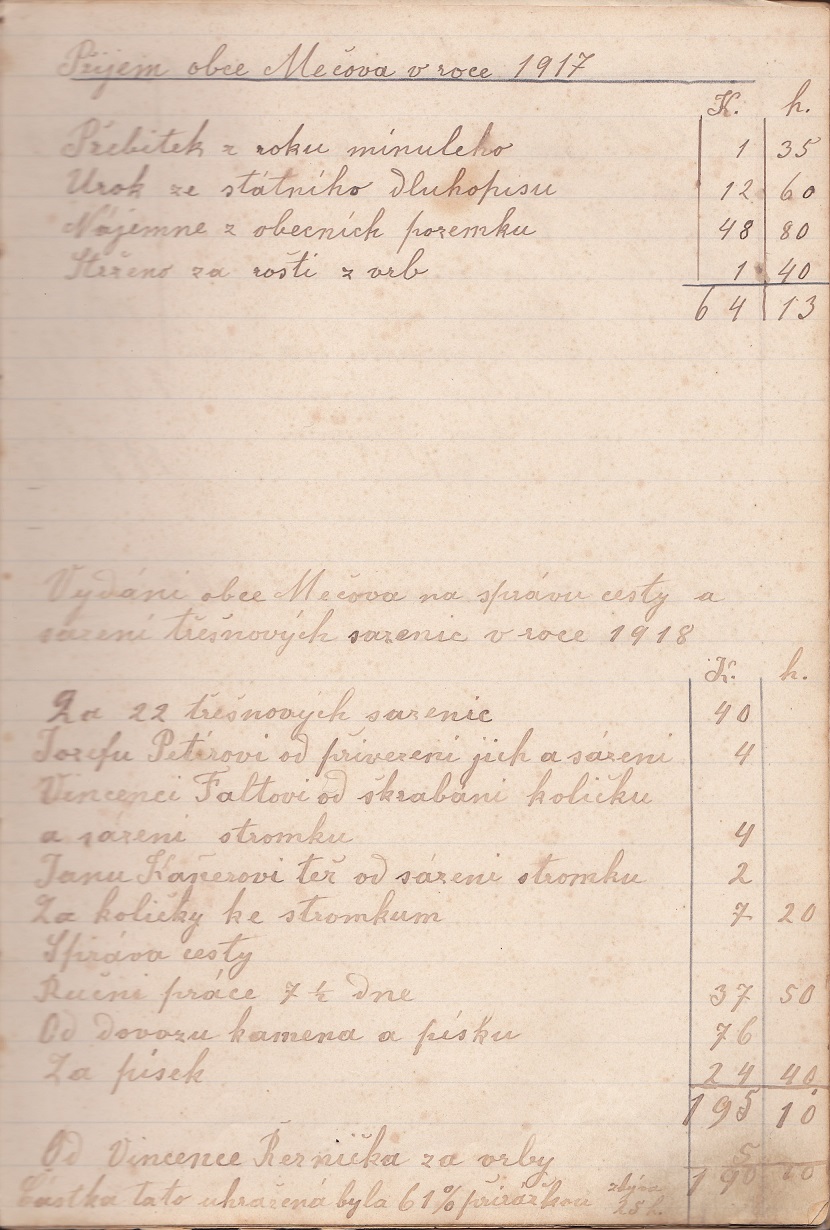 Příjem obce Mečova v roce 1917
K. h.
Přebitek z roku minuleho 1 35
Urok ze státního dluhopisu 12 60
Nájemne z obecních pozemku 48 80
Strženo za rošti z vrb 1 40
64 13
Vydáni obce Mečova na správu cesty a
sázení třešnových sazenic v roce 1918
K. h.
Za 22 třešnových sazenic 40
Jozefu Petírovi od přivezeni jich a sázeni 4
Vincenci Faltovi od škrabáni količku
a sázeni stromku 4
Janu Kašerovi tež od sázeni stromku 2
Za količky ke stromkum 7 20
Správa cesty
Ručni práce 7 ½ dne 37 50
Od dovozu kamena a písku 76
Za písek 24 40
195 10
Od Vincence Řezníčka za vrby 5
Částka tato uhražená byla 61% přirážkou zbýva 25 h. 190